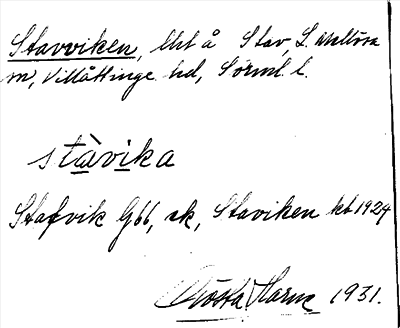 Stavviken, lht å Stav, L. Malllösa
sn, Villåttinge hd, Sörml. l.
stàvika
Stafvik G66, sk, Staviken kb 1924
Gösta Harne 1931.